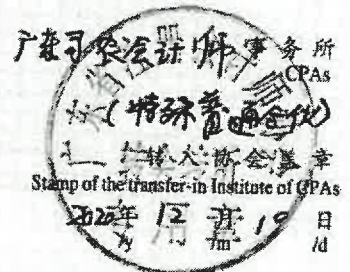 广东司农会计师事务所
CPAs
(特殊普通合伙)
转入协会盖章
Stamp of the transfer-in Institute of CPAs
2020年 12 月 10 日
/y /m /d